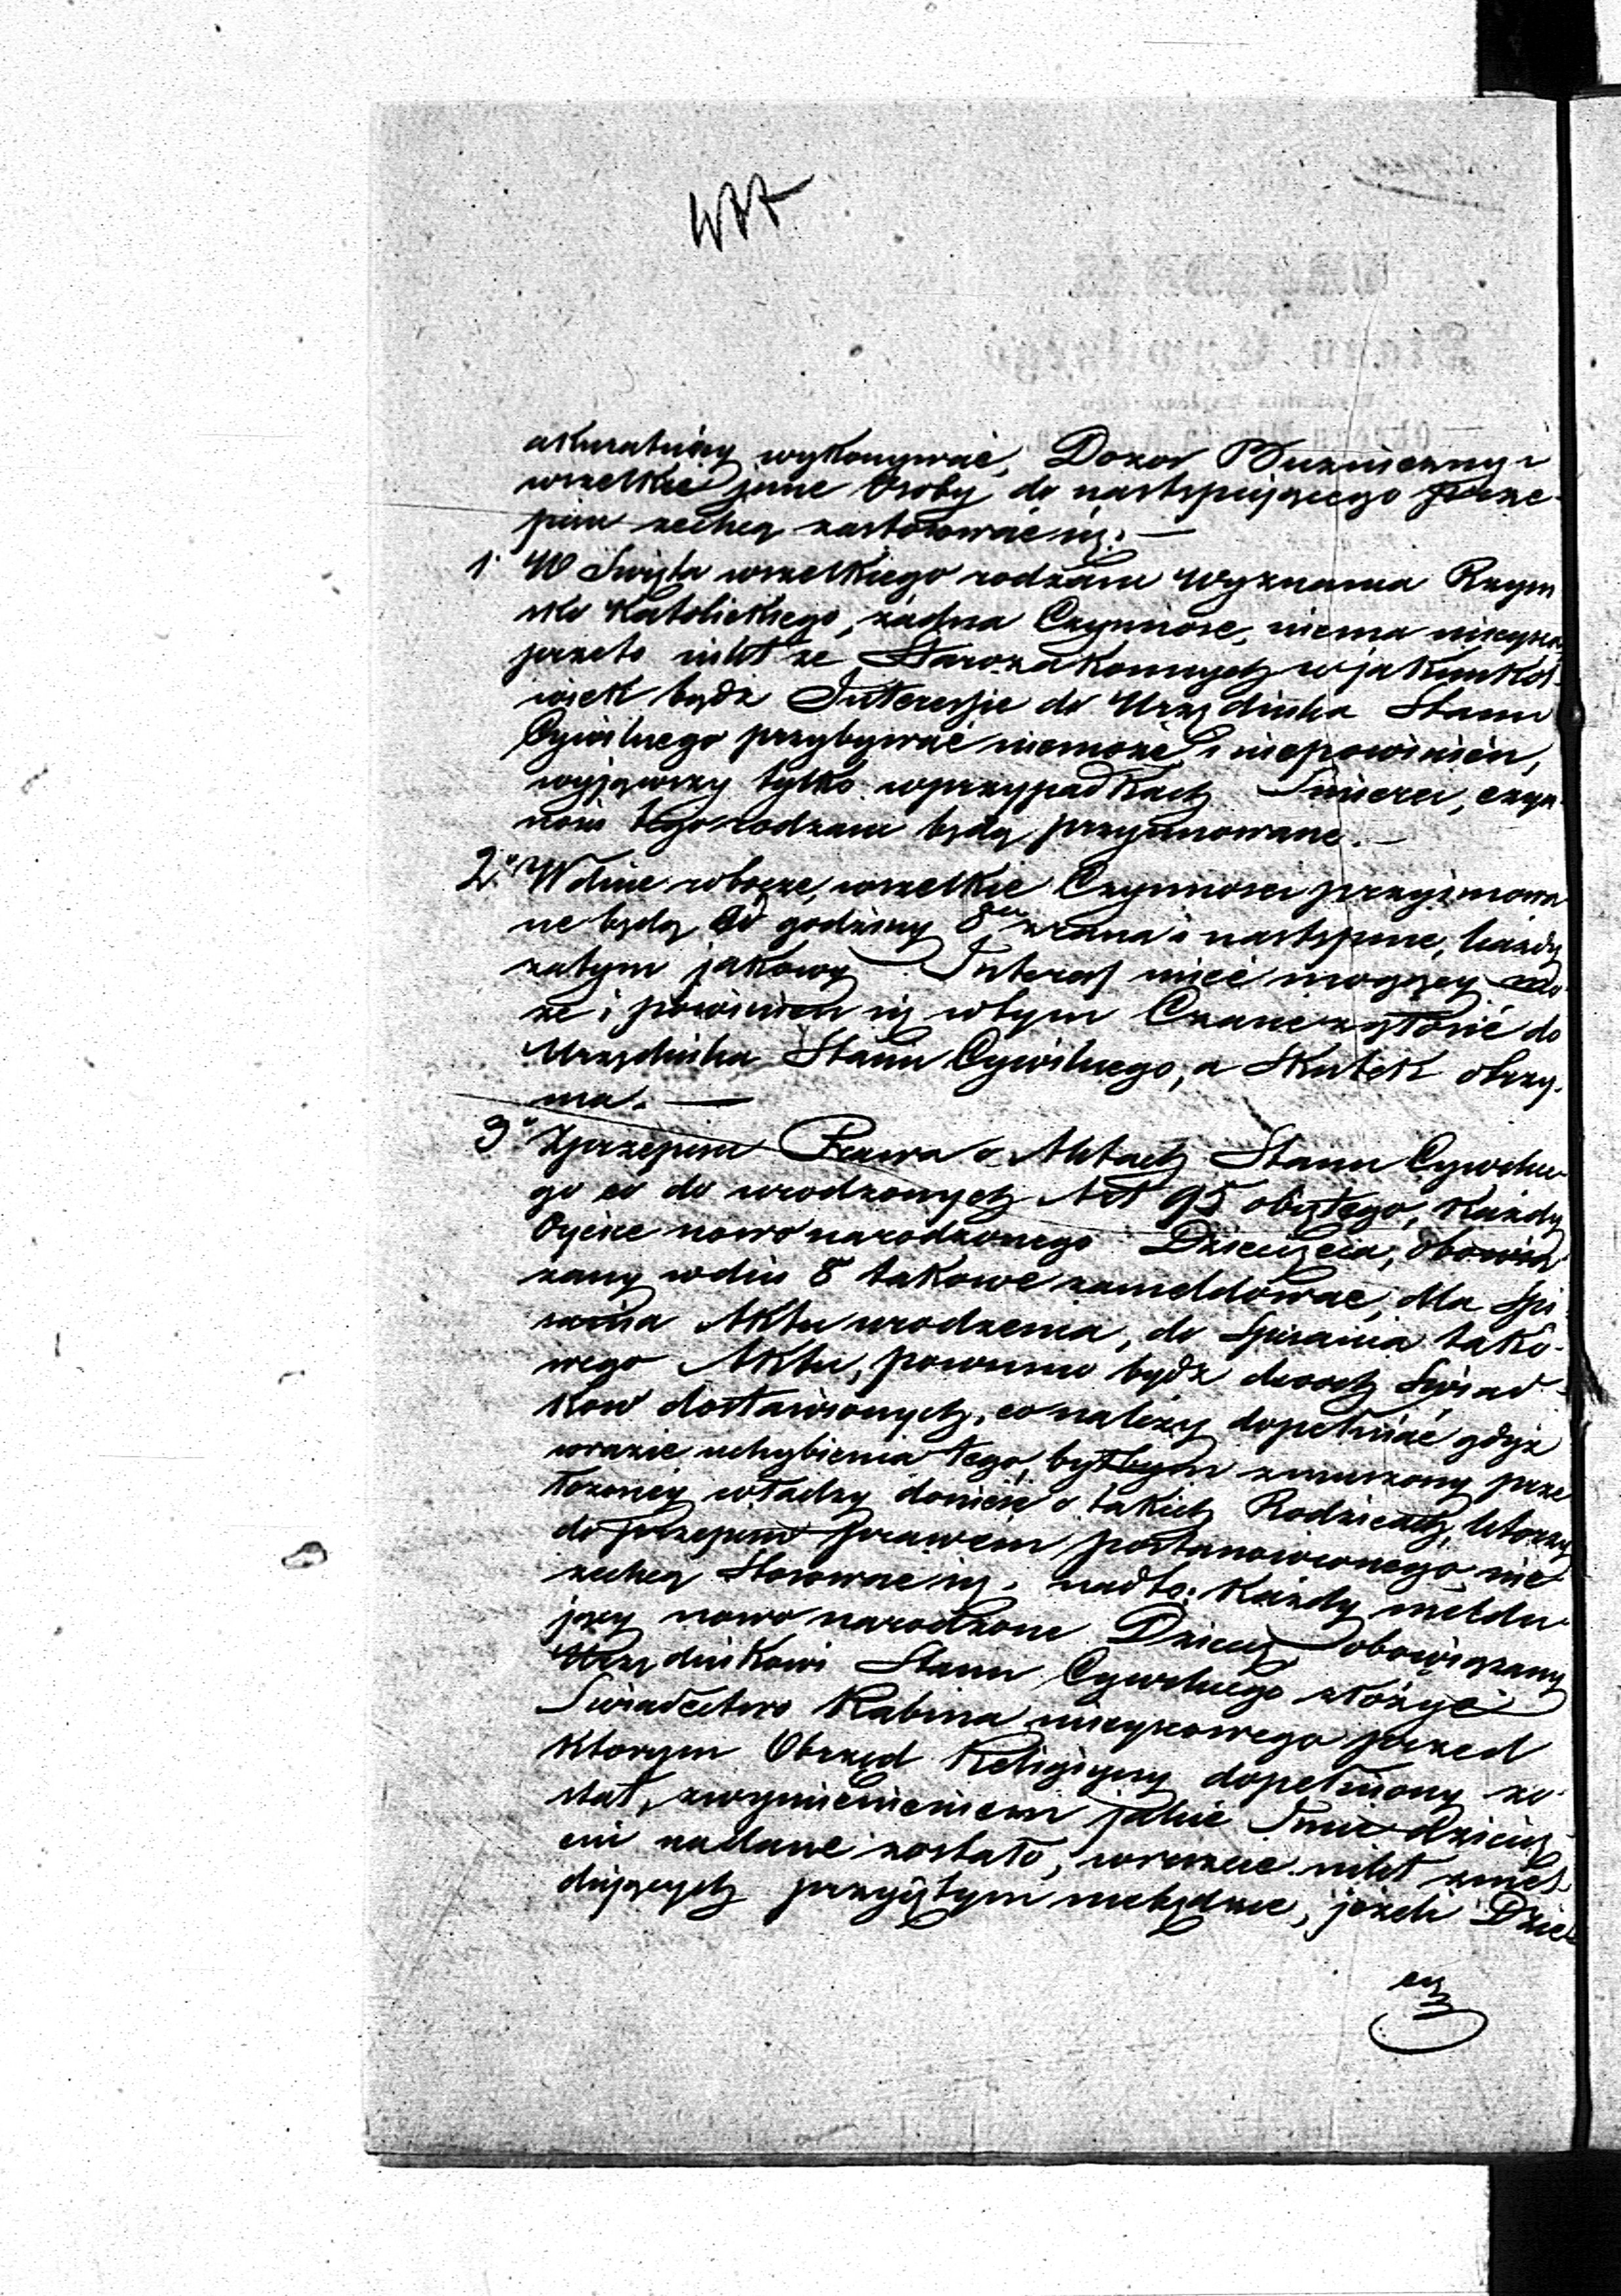 akuratniey wykonywać, Dozor Bużniczny i
wszelkie jnne Osoby do nastepuiącego prze-
pisu zechcą zastosować się. —
1. W Swięta wszelkiego rodzaiu Wyznania Rzym
sko Katolickiego, żadna Czynnosć, niema mieysca,
przeto nikt ze Starozakonnych w jakimkol-
wiek bądź Interessie do Urzędnika Stanu
Cywilnego przybywać niemoże i niepowinien,
wyjąwszy tylko wprzypadkach Smierci, czyn-
nosci tego rodzaiu będą przyimowane. —
2o W dnie robocze, wszelkie Czynnosci przyimowa
ne będą od godziny 8ey zrana i nastepnie, każdy
zatym jakowy Interess mieć mogący mo-
że i powinien się wtym Czasie zgłosić do
Urzędnika Stanu Cywilnego, a Skutek otrzy-
ma. —
3o Zprzepisu Prawa o Aktach Stanu Cywilne-
go co do urodzonych Art 95 obiętego, Każdy
Oyciec nowo narodzonego Dziecięcia, obowią
zany wdni 8 takowe zameldować, dla Spi-
sania Aktu urodzenia, do Spisania tako-
wego Aktu, powinno bydź dwoch Swiad-
kow dostawionych, co należy dopełniać gdyż
wrazie uchybienia tego, byłbym zmuszony prze
łożoney władzy donieść o takich Rodzicach, którzy
do przepisu prawem postanowionego nie
zechcą Stosować się. nadto. Każdy meldu-
jący nowo narodzone Dziecię obowiązany
Urzędnikowi Stanu Cywilnego złożyć
Swiadectwo Rabina mieyscowego przed
ktorym Obrzęd Religijny dopełniony zo-
stał, zwymienieniem jakie Imie dziecię-
ciu nadane zostało, wreszcie nikt zmel-
dujących przyiętym niebędzie, jeżeli Dzie-
cię